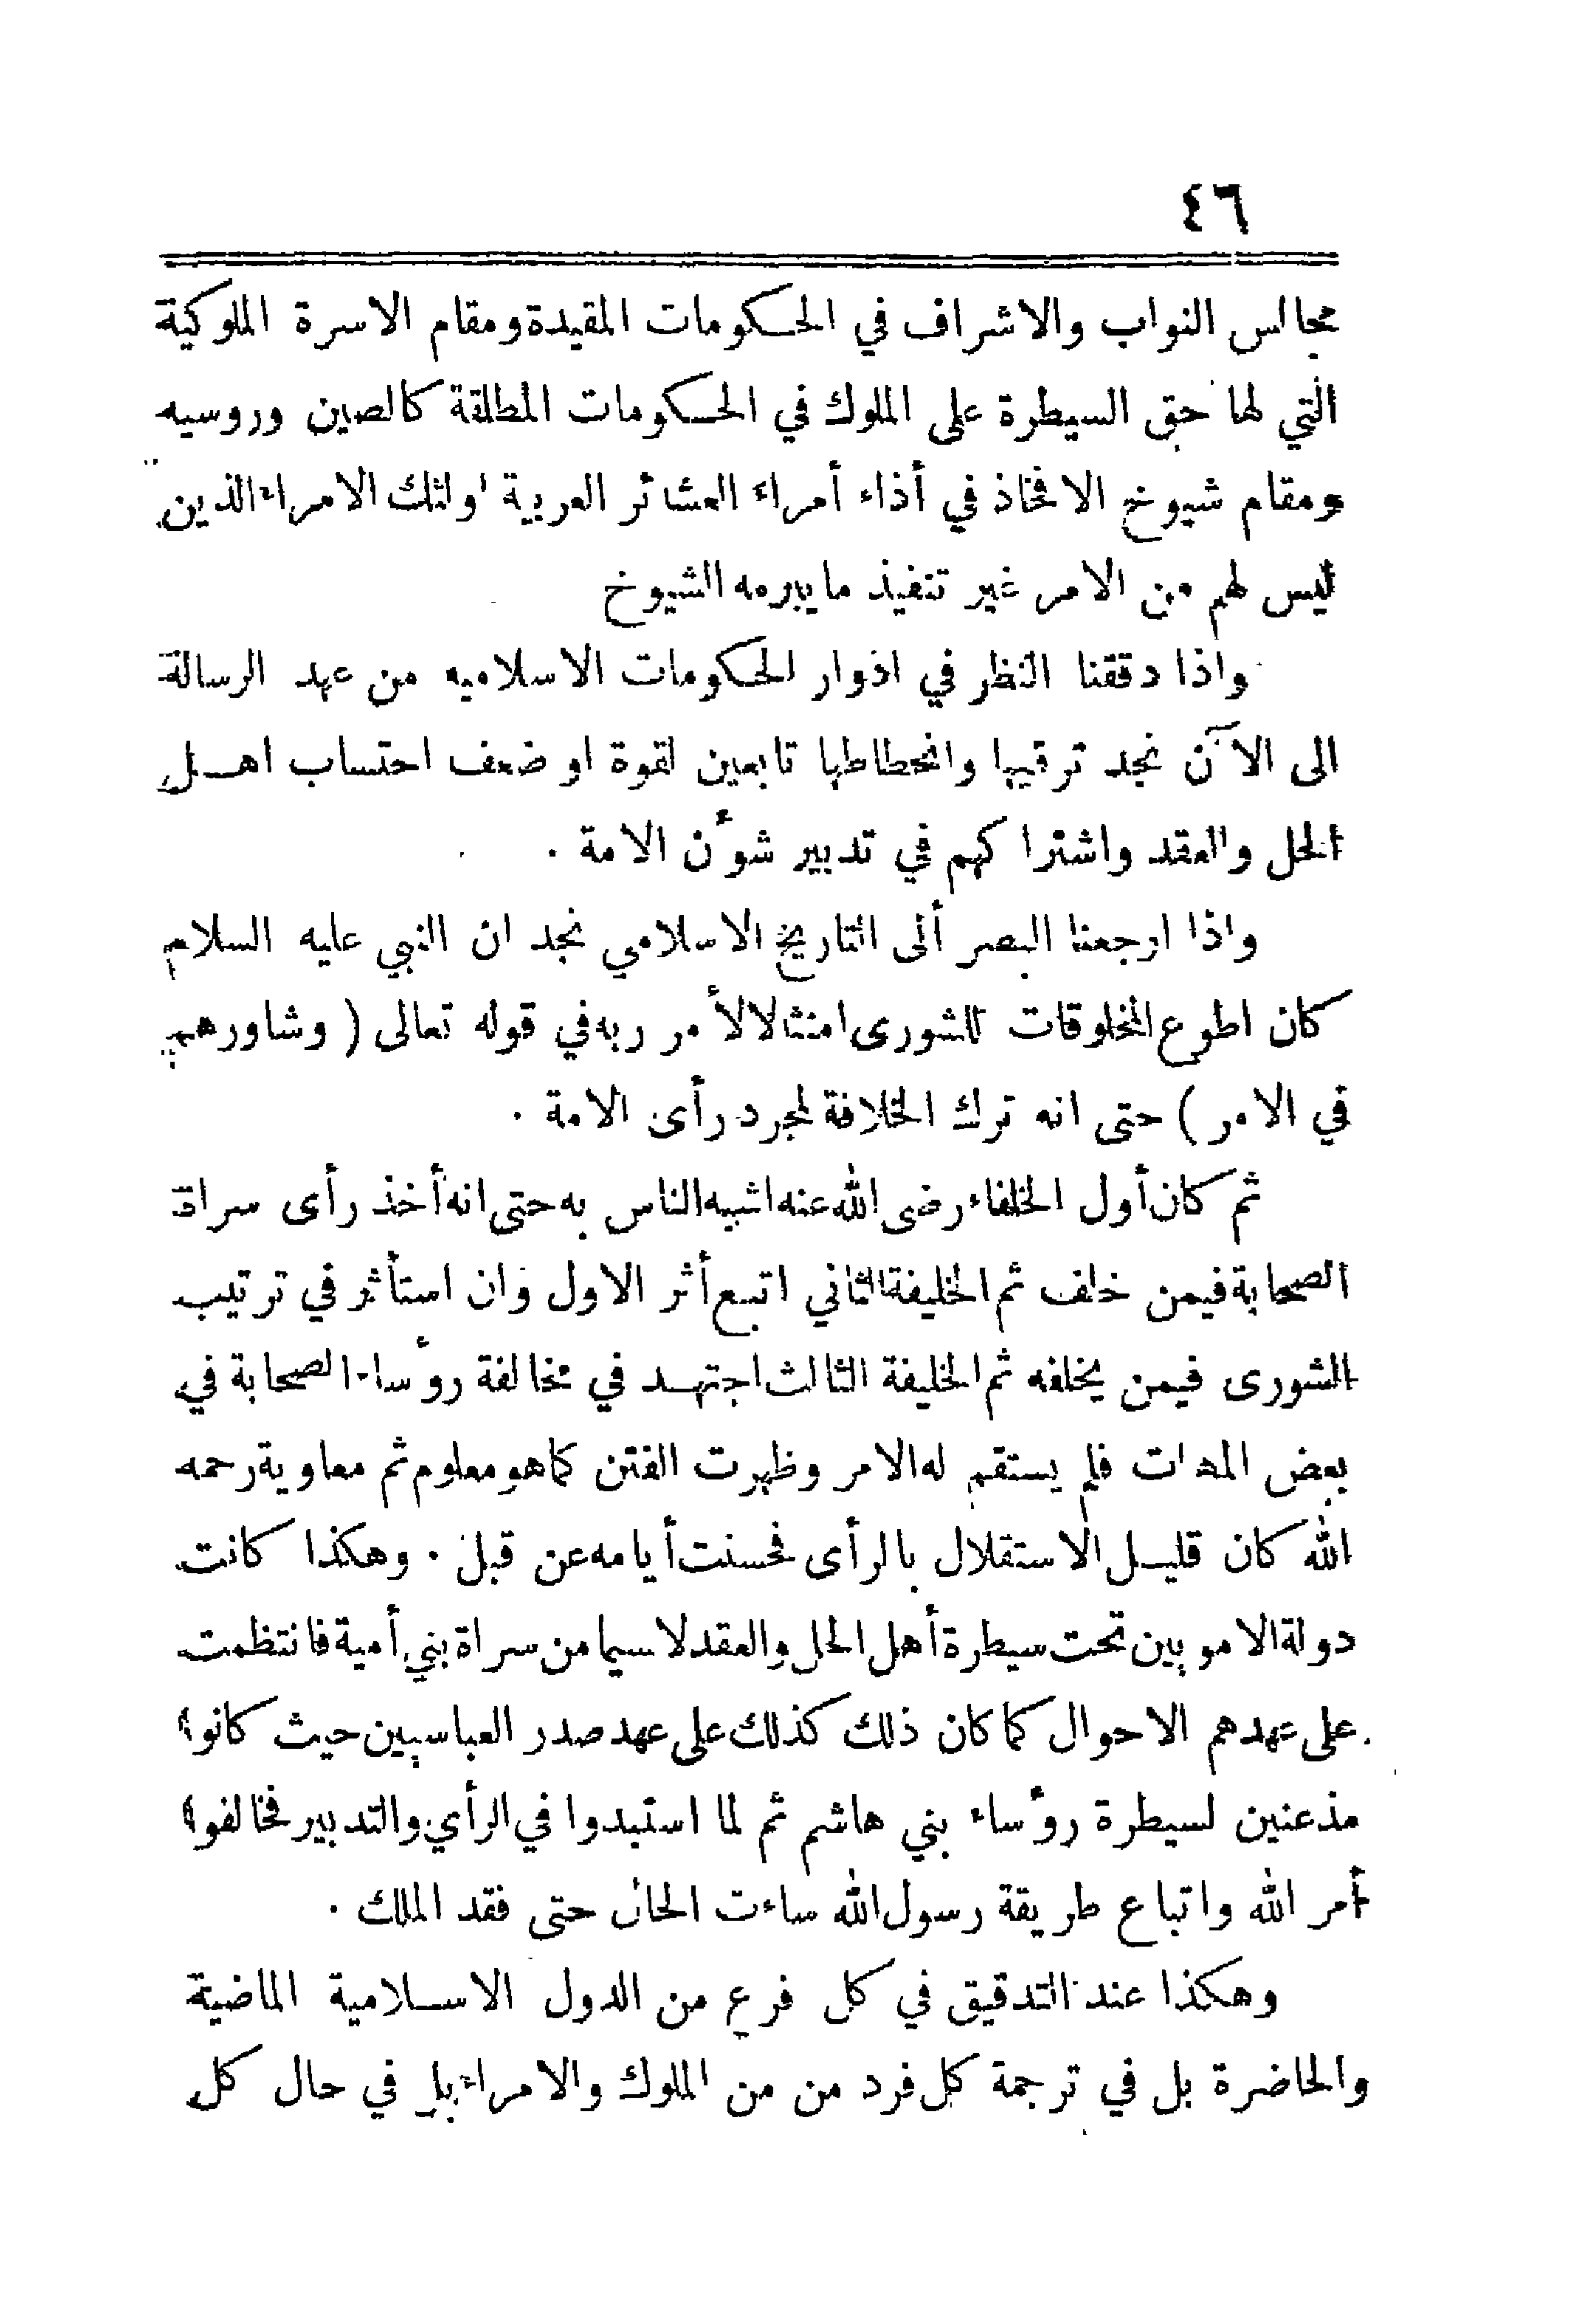 ٤٦
مجالس النواب والاشراف في الحكومات المقيدة ومقام الاسرة الملوكية
التي لها حق السيطرة على الملوك في الحكومات المطلقة كالصين وروسيه
ومقام شيوخ الافخاذ في أذاء أمراء العشائر العربية اولئك الامراء الذين
ليس لهم من الامر غير تنفيذ مايبرمه الشيوخ
واذا دققنا النظر في ادوار الحكومات الاسلاميه من عهد الرسالة
الى الآن نجد ترقيها وانحطاطها تابعين لقوة او ضعف احتساب اهل
الحل والعقد واشتراكهم في تدبير شوٴن الامة .
واذا ارجعنا البصر ألى التاريخ الاسلامي نجد ان النبي عليه السلام
كان اطوع المخلوقات للشورى امتثالا لأمر ربه في قوله تعالى ( وشاورهم
في الامر ) حتى انه ترك الخلافة لمجرد رأى الامة .
ثم كان أول الخلفاء رضى الله عنه اشبه الناس به حتى انه أخذ رأى سراة
الصحابة فيمن خلف ثم الخليفة الثاني اتبع أثر الاول وان استأثر في ترتيب
الشورى فيمن يخلفه ثم الخليفة الثالث اجتهد في مخالفة روٴساء الصحابة في
بعض المهمات فلم يستقم له الامر وظهرت الفتن كما هو معلوم ثم معاوية رحمه
الله كان قليل الاستقلال بالرأى فحسنت أيامه عن قبل . وهكذا كانت
دولة الامويين تحت سيطرة أهل الحل والعقد لاسيما من سراة بني أمية فانتظمت
على عهدهم الاحوال كما كان ذلك كذلك على عهد صدر العباسيين حيث كانوا
مذعنين لسيطرة روٴساء بني هاشم ثم لما استبدوا في الرأي والتدبير فخالفوا
أمر الله واتباع طريقة رسول الله ساءت الحال حتى فقد الملك .
وهكذا عند التدقيق في كل فرع من الدول الاسلامية الماضية
والحاضرة بل في ترجمة كل فرد من من الملوك والامراء بل في حال كل